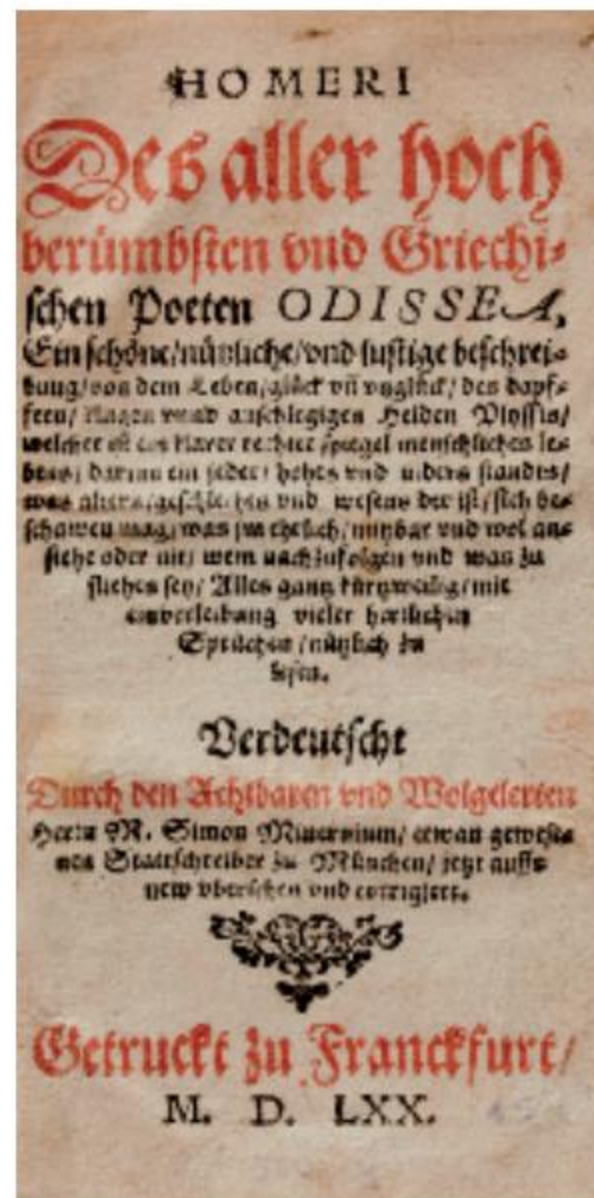 HOMERI
Des aller hoch
berümbsten vnd Griechi⸗
schen Poeten ODISSEA,
Ein schöne/nützliche/vnd lustige beschrei⸗
bung/von dem Leben/glück vñ vnglück/ des dapf⸗
fern/ klugen vnnd anschlegigen Helden Vlyssis/
welcher ist ein klarer rechter spiegel menschliches le⸗
bens/ darinn ein jeder/ hohes vnd niders standes/
was alters/geschlechts vnd wesens der ist/sich be⸗
schawen mag/was jm ehrlich/nutzbar vnd wol an⸗
stehe oder nit/ wem nachzufolgen vnd was zu
fliehen sey/ Alles gantz kurtzweilig/mit
einverleibung vieler herrlichen
Sprüchen/nützlich zu
lesen.
Verdeutscht
Durch den Achtbaren vnd Wolgelerten
Herrn M. Simon Mineruium/ etwan gewese⸗
nen Stattschreiber zu München/ jetzt auffs
new vbersehen vnd corrigiert.
Getruckt zu Franckfurt/
M. D. LXX.